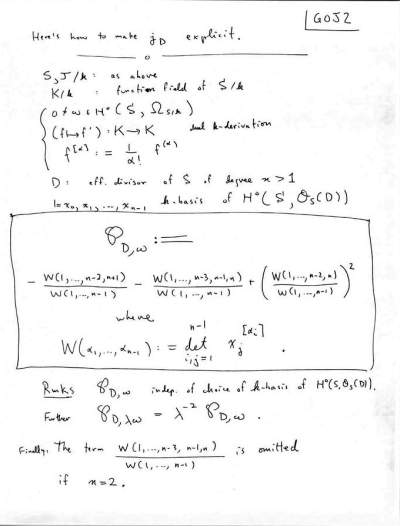 GOJ2
Here's how to make j_D explicit.
S, J/k : as above
K/k : function field of S/k
0 ≠ ω ∈ H°(S, Ω_{S/k})
(f ↦ f') : K → K dual k-derivation
f^{[α]} := 1/α! f^{(α)}
D : eff. divisor of S of degree n > 1
1 = x_0, x_1, ..., x_{n-1} k-basis of H°(S, O_S(D))
℘_{D,ω} :=
- W(1,...,n-2,n+1)/W(1,...,n-1) - W(1,...,n-3,n-1,n)/W(1,...,n-1) + (W(1,...,n-2,n)/W(1,...,n-1))^2
where
W(α_1, ..., α_{n-1}) := det_{i,j=1}^{n-1} x_j^{[α_i]} .
Rmks ℘_{D,ω} indep. of choice of k-basis of H°(S, O_S(D)).
Further ℘_{D,λω} = λ^{-2} ℘_{D,ω} .
Finally, The term W(1,...,n-3,n-1,n)/W(1,...,n-1) is omitted
if n = 2 .